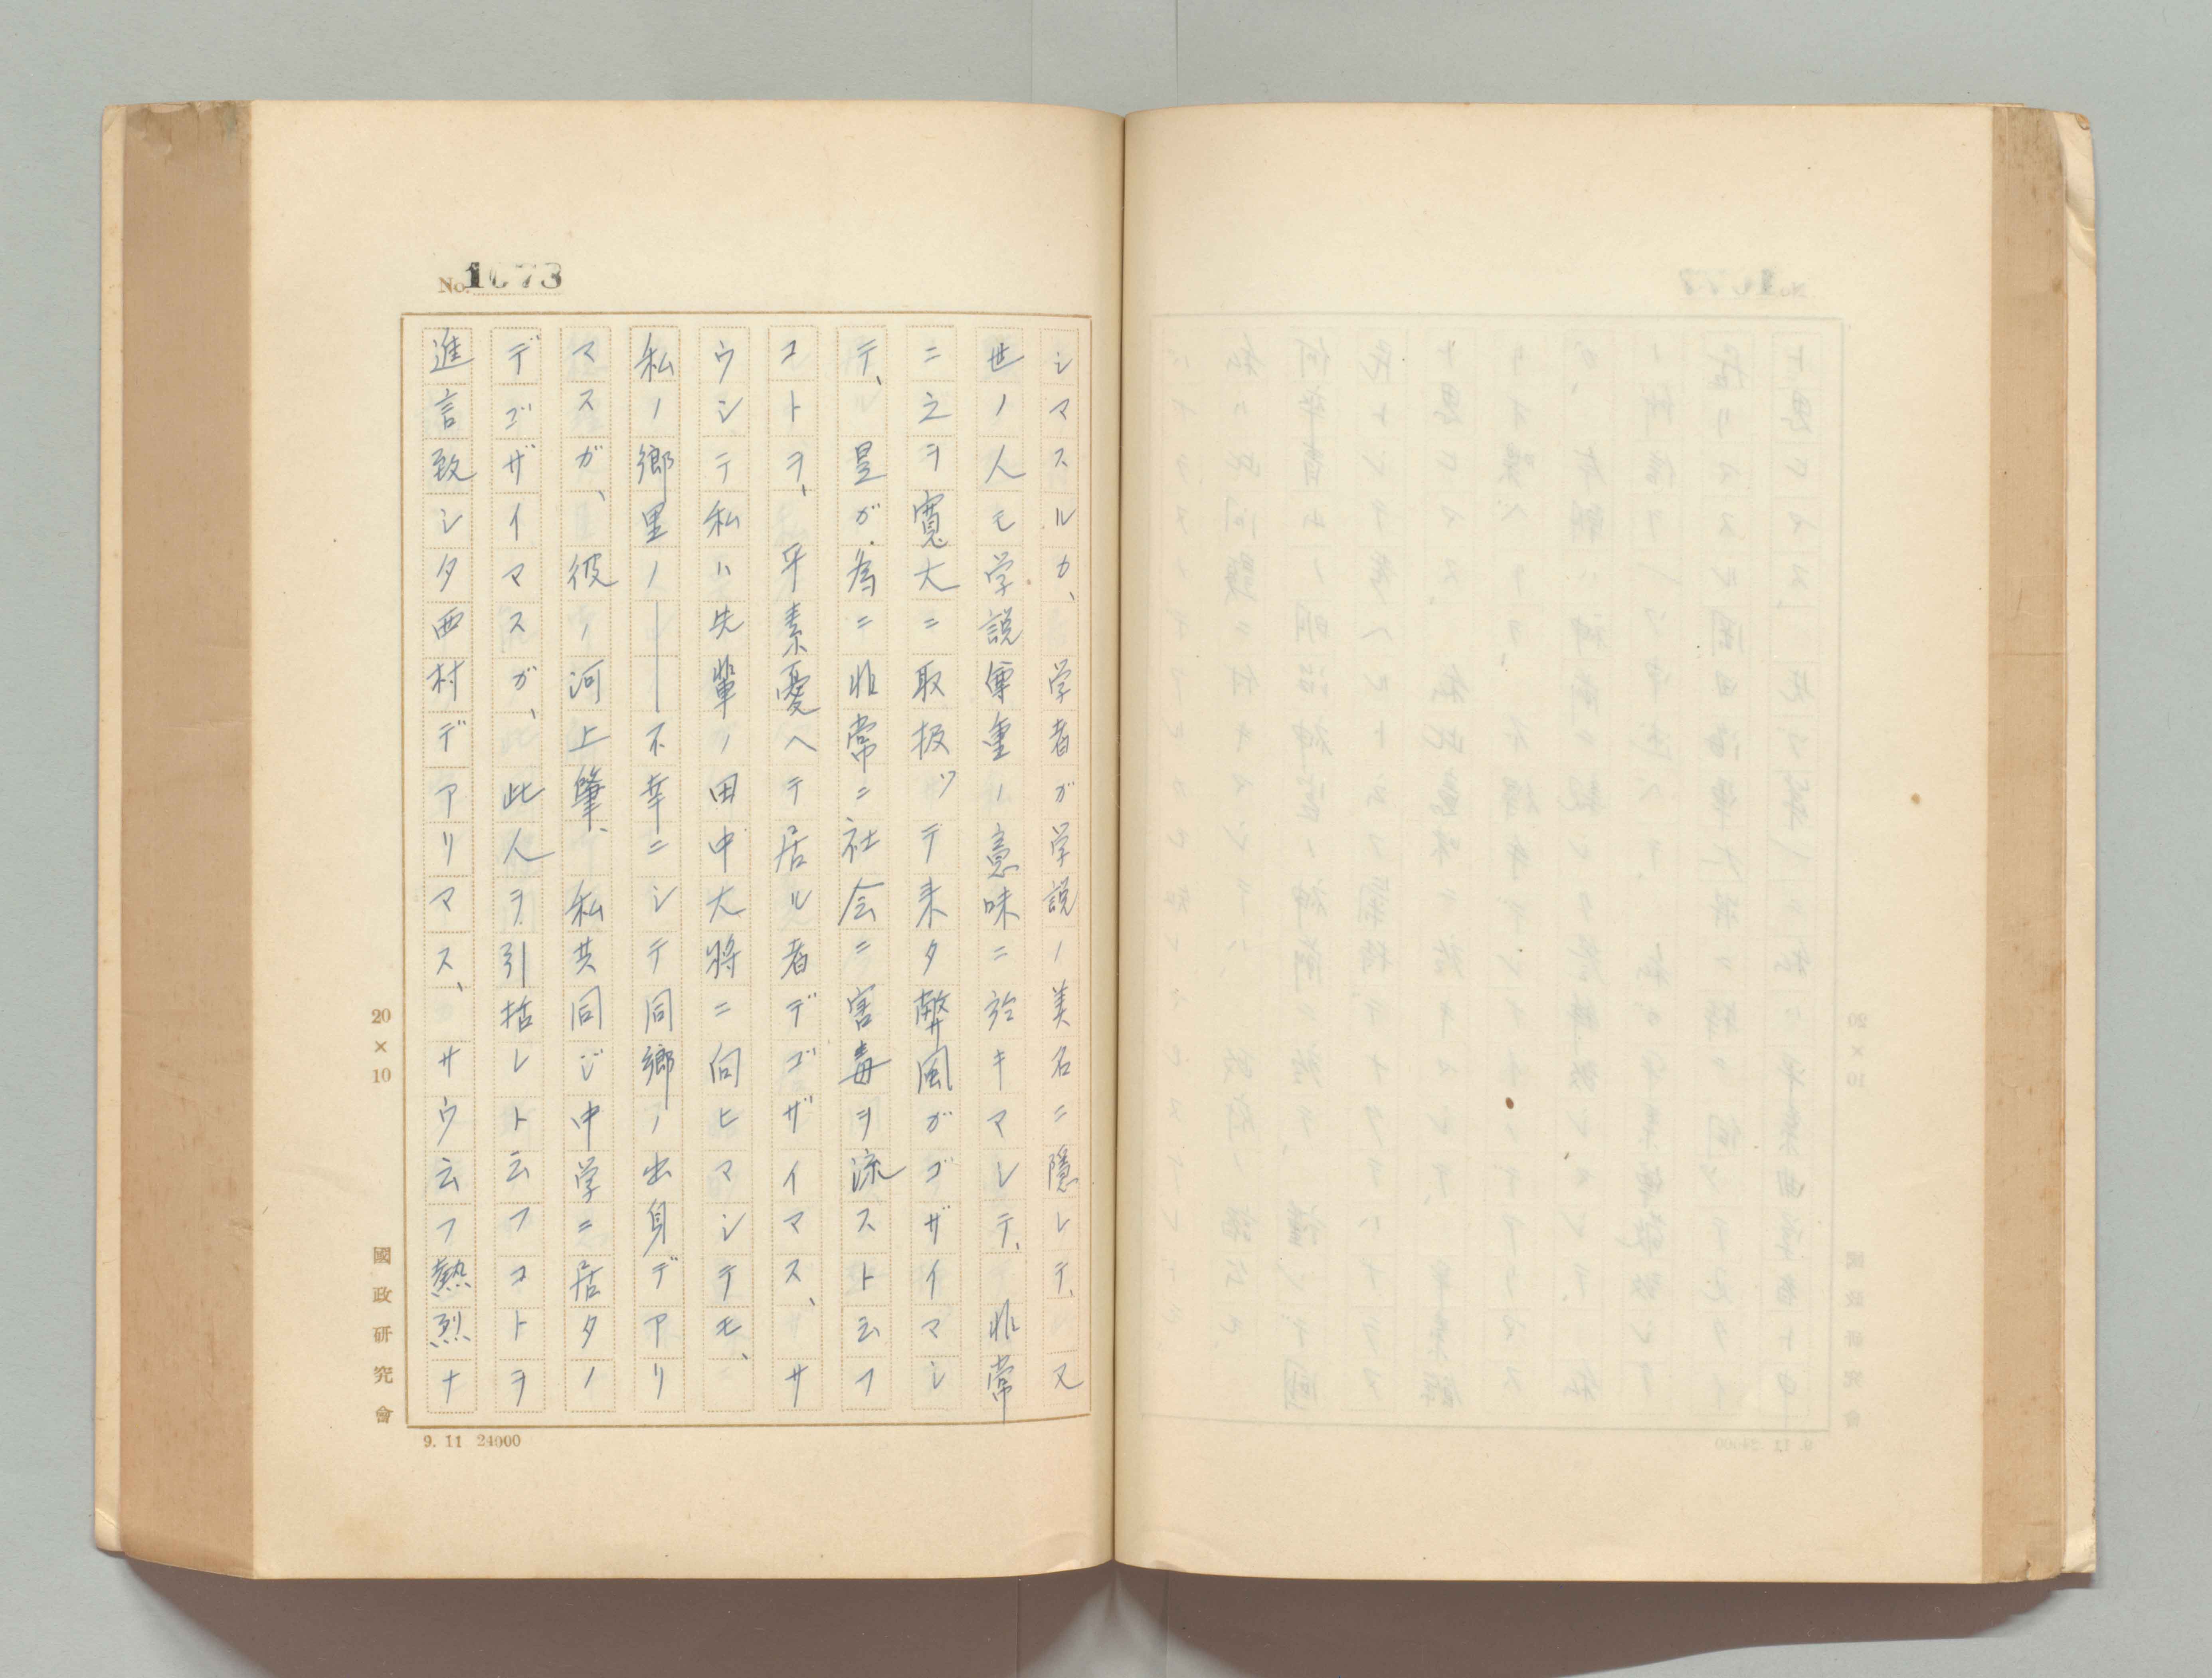 No. 1073
シマスルカ、学者ガ学説ノ美名ニ隠レテ、又
世ノ人モ学説尊重ノ意味ニ於キマシテ、非常
ニ之ヲ寛大ニ取扱ツテ来タ弊風ガゴザイマシ
テ、是ガ為ニ非常ニ社会ニ害毒ヲ流スト云フ
コトヲ、平素憂ヘテ居ル者デゴザイマス、サ
ウシテ私ハ先輩ノ田中大将ニ向ヒマシテモ、
私ノ郷里ノ――不幸ニシテ同郷ノ出身デアリ
マスガ、彼ノ河上肇、私共同ジ中学ニ居タノ
デゴザイマスガ、此人ヲ引括レト云フコトヲ
進言致シタ西村デアリマス、サウ云フ熱烈ナ
20×10
國政研究會
9. 11 24000